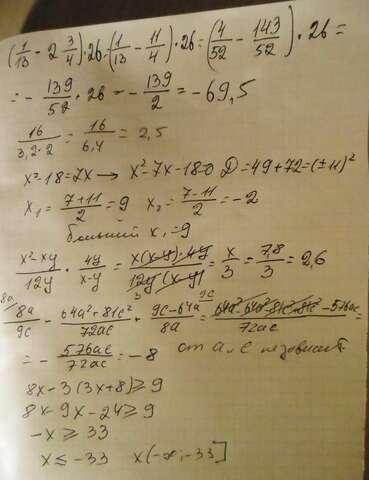 (1/13 - 2 3/4)·26 = (1/13 - 11/4)·26 = (4/52 - 143/52)·26 =
= - 139/52 · 26 = - 139/2 = -69,5
16/3,2·2 = 16/6,4 = 2,5
x²-18=7x → x²-7x-18=0 D=49+72=(±11)²
x₁ = 7+11/2 = 9 x₂ = 7-11/2 = -2
больший x₁=9
x²-xy/12y · 4y/x-y = x(x-y)·4y/12y(x-y) = x/3 = 7,8/3 = 2,6
8a/9c - 64a²+81c²/72ac + 9c-64a/8a = 64a²-64a²-81c²+81c²-576ac/72ac =
= - 576ac/72ac = -8 от a и c не зависит.
8x-3(3x+8)≥9
8x-9x-24≥9
-x≥33
x≤-33 x(-∞;-33]